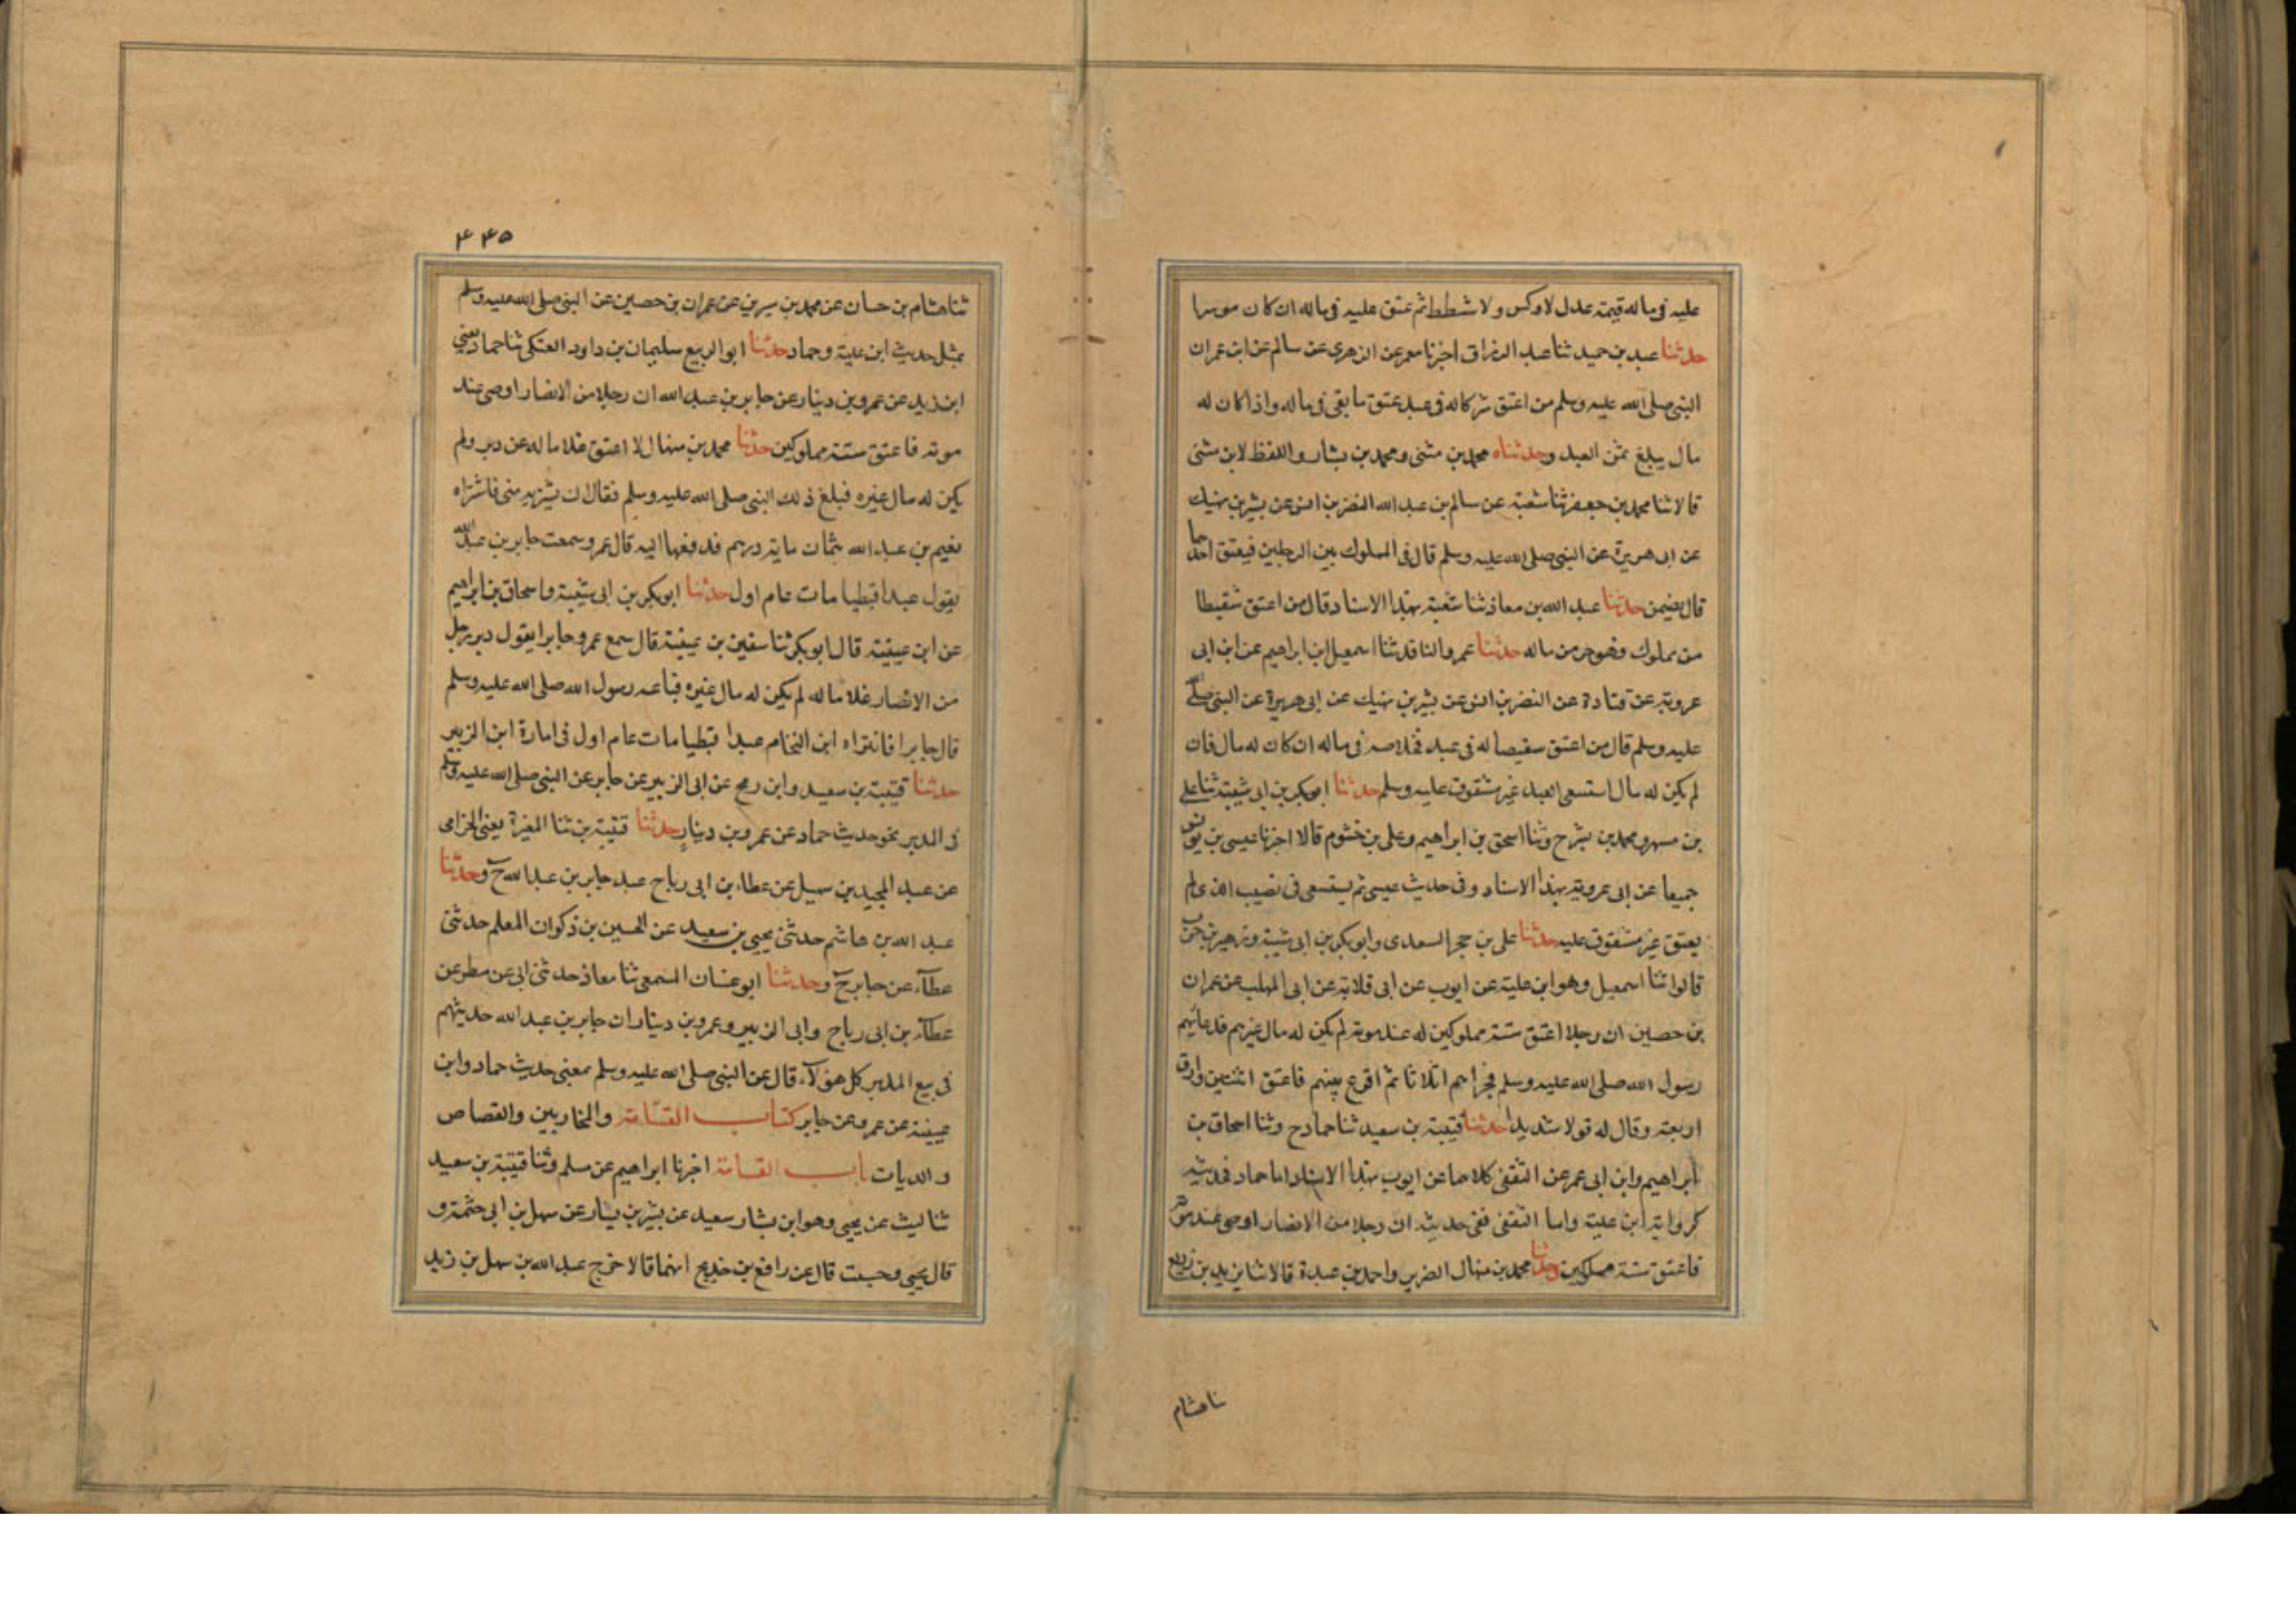 عليه في ماله قيمة عدل لا وكس ولا شطط ثم عتق عليه في ماله ان كان موسرا
حدثنا عبد بن حميد ثنا عبد الرزاق اخبرنا معمر عن الزهري عن سالم عن ابن عمر ان
النبي صلى الله عليه وسلم من اعتق شركا له في عبد عتق ما بقي في ماله واذا كان له
مال يبلغ ثمن العبد وحدثناه محمد بن مثنى ومحمد بن بشار واللفظ لابن مثنى
قالا ثنا محمد بن جعفر ثنا شعبة عن سالم بن عبد الله النضر بن انس عن بشير بن نهيك
عن ابى هريرة عن النبي صلى الله عليه وسلم قال في المملوك بين الرجلين فيعتق احدهما
قال يضمن حدثنا عبد الله بن معاذ ثنا شعبة بهذا الاسناد قال من اعتق شقيطا
من مملوك فهو حر من ماله حدثنا عمرو الناقد ثنا اسمعيل ابن ابراهيم عن ابن ابى
عروبة عن قتادة عن النضر بن انس عن بشير بن نهيك عن ابى هريرة عن النبي صلى الله
عليه وسلم قال من اعتق سقيصا له في عبد فخلاصه في ماله ان كان له مال فان
لم يكن له مال استسعى العبد غير مشقوق عليه وسلم حدثنا ابو بكر بن ابى شيبة ثنا على
بن مسهر ومحمد بن بشر ح وثنا اسحق بن ابراهيم وعلى بن خشرم قالا اخبرنا عيسى بن يونس
جميعا عن ابى عروبة بهذا الاسناد وفى حديث عيسى ثم يستسعى في نصيب الذى لم
يعتق غير مشقوق عليه حدثنا على بن حجر السعدى وابو بكر بن ابى شيبة وزهير بن حرب
قالوا ثنا اسمعيل وهو ابن علية عن ايوب عن ابى قلابة عن ابى المهلب عن عمران
بن حصين ان رجلا اعتق ستة مملوكين له عند موته لم يكن له مال غيرهم فدعا بهم
رسول الله صلى الله عليه وسلم فجزاهم اثلاثا ثم اقرع بينهم فاعتق اثنين وارق
اربعة وقال له قولا شديدا حدثنا قتيبة بن سعيد ثنا حماد ح وثنا اسحاق بن
ابراهيم وابن ابى عمر عن الثقفى كلاهما عن ايوب بهذا الاسناد اما حماد فحديثه
كرواية ابن علية واما الثقفى ففى حديثه ان رجلا من الانصار اوصى عند موته
فاعتق ستة مملوكين وحدثنا محمد بن منهال الضرير واحمد بن عبدة قالا ثنا يزيد بن زريع
ثنا هشام
٤٤٥
ثنا هشام بن حسان عن محمد بن سيرين عن عمران بن حصين عن النبي صلى الله عليه وسلم
بمثل حديث ابن علية وحماد حدثنا ابو الربيع سليمان بن داود العتكى ثنا حماد يعنى
ابن زيد عن عمرو بن دينار عن جابر بن عبد الله ان رجلا من الانصار اوصى عند
موته فاعتق ستة مملوكين حدثنا محمد بن منهال لا اعتق غلاما له عن دبر ولم
يكن له مال غيره فبلغ ذلك النبي صلى الله عليه وسلم فقال ان يشتريه منى فاشتراه
نعيم بن عبد الله بثمان ماية درهم فدفعها اليه قال عمرو سمعت جابر بن عبد الله
يقول عبدا قبطيا مات عام اول حدثنا ابو بكر بن ابى شيبة واسحاق بن ابراهيم
عن ابن عيينة قال ابو بكر ثنا سفين بن عيينة قال سمع عمرو جابرا يقول دبر رجل
من الانصار غلاما له لم يكن له مال غيره فباعه رسول الله صلى الله عليه وسلم
قال جابرا فاشتراه ابن النحام عبدا قبطيا مات عام اول في امارة ابن الزبير
حدثنا قتيبة بن سعيد وابن رمح عن ابى الزبير عن جابر عن النبي صلى الله عليه وسلم
في المدبر نحو حديث حماد عن عمرو بن دينار حدثنا قتيبة بن ثنا المغيرة يعنى الحزامى
عن عبد المجيد بن سهيل عن عطاء بن ابى رباح عبد جابر بن عبد الله ح وحدثنا
عبد الله بن هاشم حدثنى يحيى بن سعيد عن الحسين بن ذكوان المعلم حدثنى
عطاء عن جابر ح وحدثنا ابو غسان المسمعى ثنا معاذ حدثنى ابى عن مطر عن
عطاء بن ابى رباح وابى الزبير وعمرو بن دينار ان جابر بن عبد الله حديثهم
في بيع المدبر كل هؤلاء قال عن النبي صلى الله عليه وسلم بمعنى حديث حماد وابن
عيينة عن عمرو عن جابر كتاب القسامة والمحاربين والقصاص
والديات باب القسامة اخبرنا ابراهيم عن مسلم وثنا قتيبة بن سعيد
ثنا ليث عن يحيى وهو ابن بشار سعيد عن بشير بن يسار عن سهل بن ابى حثمة و
قال يحيى وحسبت قال عن رافع بن خديج انهما قالا خرج عبد الله بن سهل بن زيد